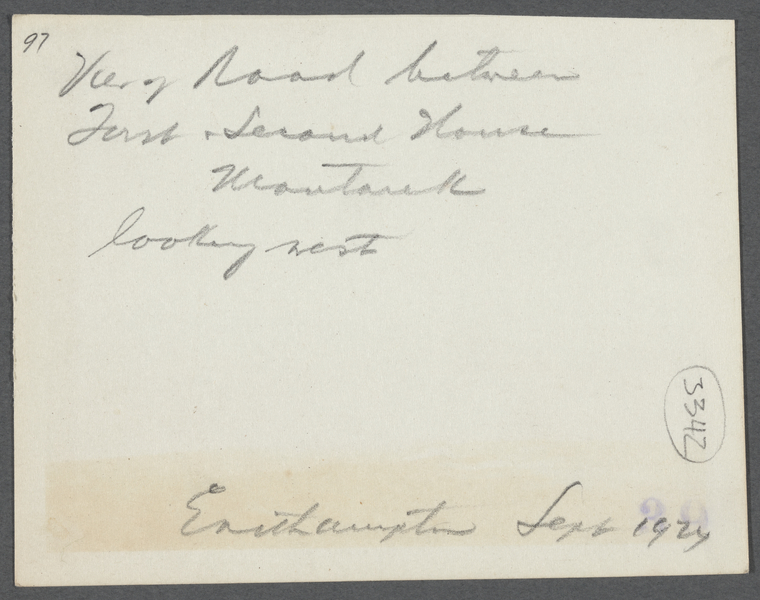 97
View of Road between
First & Second House
Montauk
looking west
3342
Easthampton Sept 1924